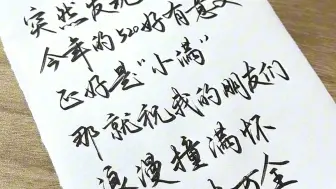 突然发现
今年的520好有意义
正好是“小满”
那就祝我的朋友们
浪漫撞满怀
全